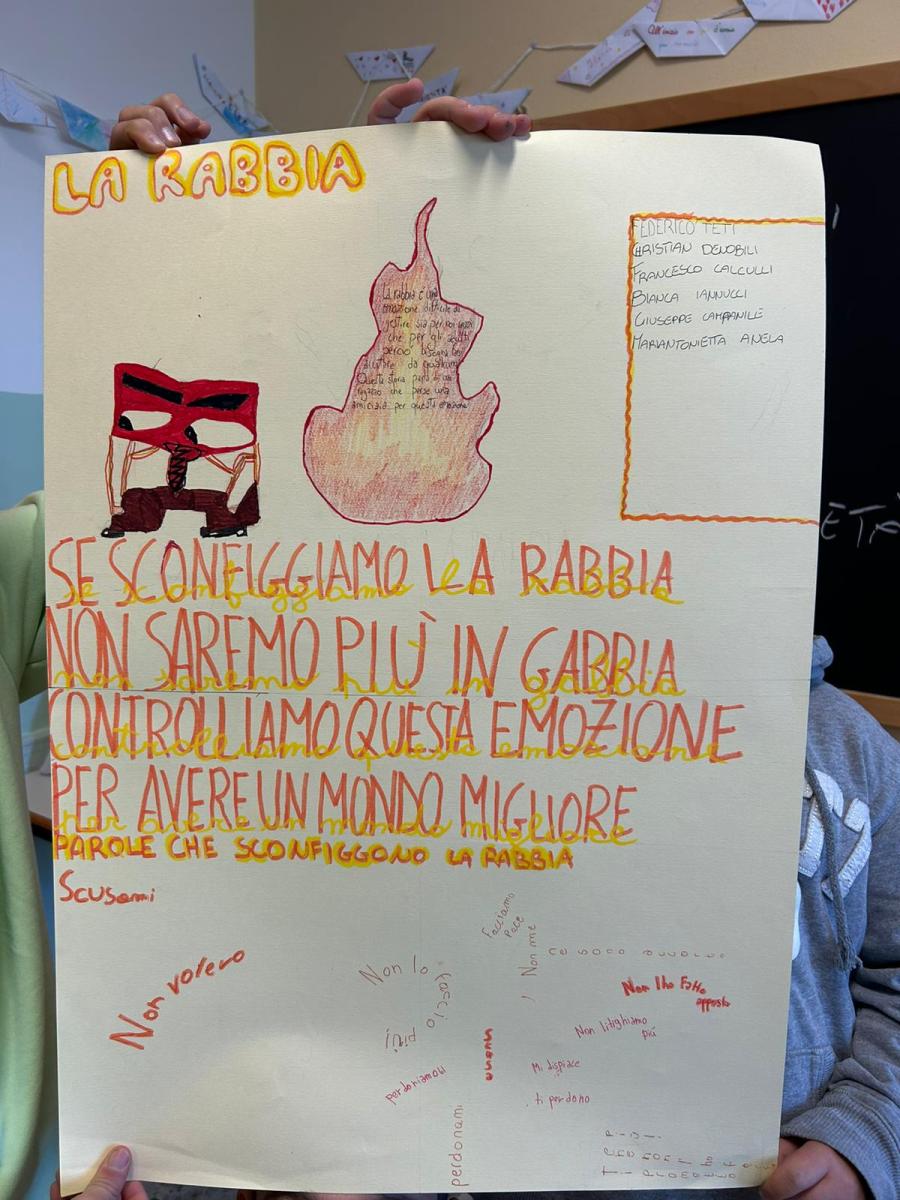 LA RABBIA
FEDERICO TETI
CHRISTIAN DENOBILI
FRANCESCO CALCULLI
BIANCA IANNUCCI
GIUSEPPE CAMPANILE
MARIANTONIETTA ANELA
La rabbia è una
emozione difficile da
gestire sia per noi
che per gli adulti
perciò bisogna farsi
aiutare da qualcuno
Questa storia parla di un
ragazzo che perse una
amicizia per questa emozione
SE SCONFIGGIAMO LA RABBIA
se sconfiggiamo la rabbia
NON SAREMO PIÙ IN GABBIA
non saremo più in gabbia
CONTROLLIAMO QUESTA EMOZIONE
controlliamo questa emozione
PER AVERE UN MONDO MIGLIORE
per avere un mondo migliore
PAROLE CHE SCONFIGGONO LA RABBIA
Scusami
Non volevo
Non lo
faccio
più
perdoniamoci
perdonami
Facciamo
pace
Non me
Non l'ho fatto
apposta
Non litighiamo
più
Mi dispiace
ti perdono